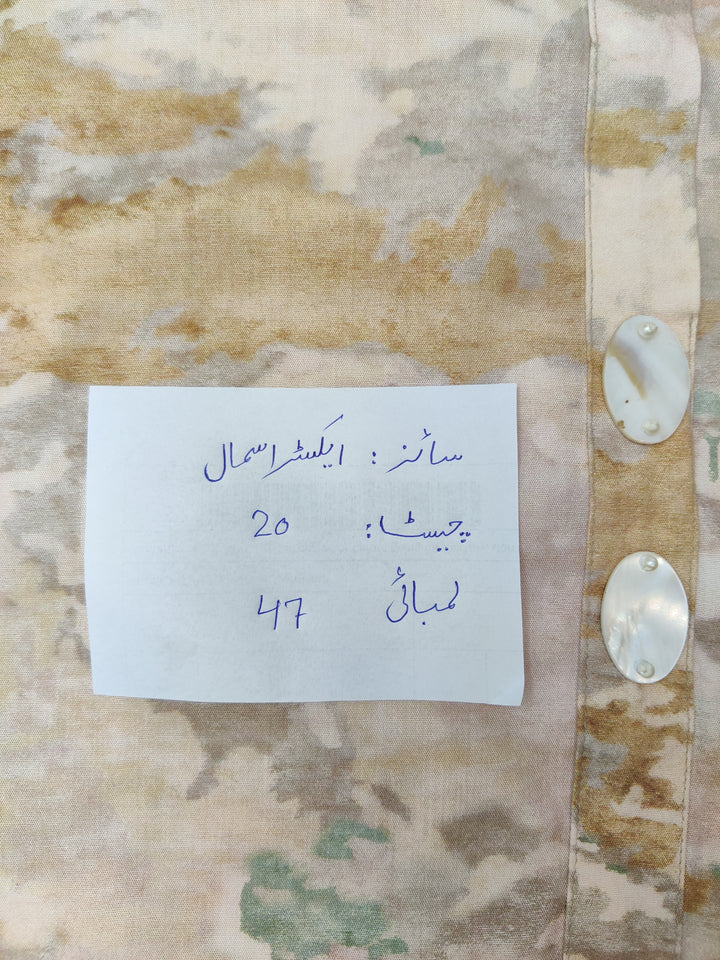 سائز: ایکسٹرا سمال
چیسٹا: 20
لمبائی 47